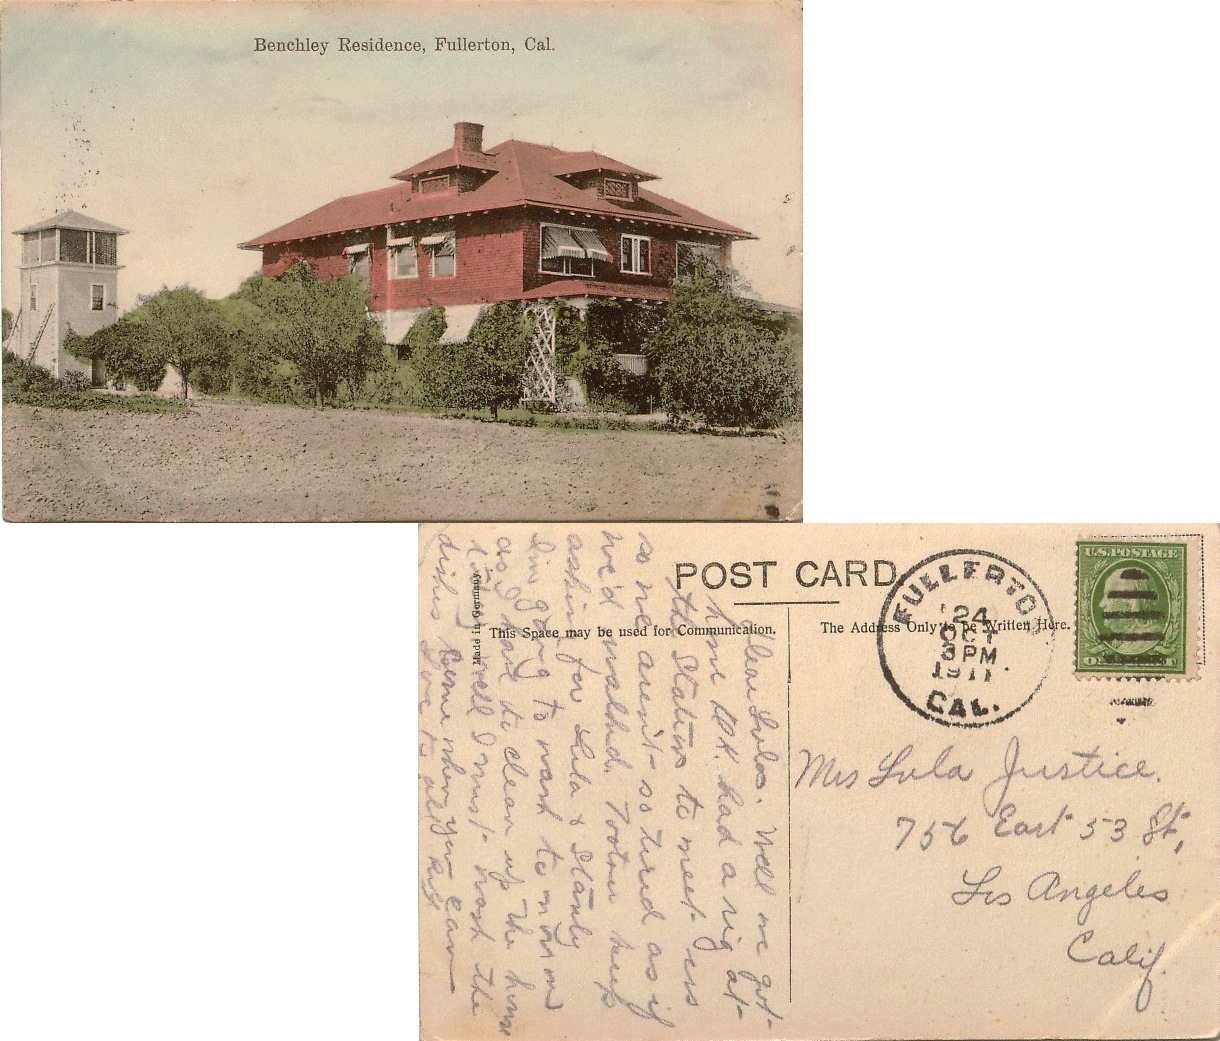 Benchley Residence, Fullerton, Cal.
POST CARD
This Space may be used for Communication.
The Address Only to be Written Here.
Made in Germany
FULLERTON
'24
OCT
3 PM
1911
CAL.
U.S. POSTAGE
Dear Lula. Well we got
home OK. had a rig at
the Station to meet us
so we aren't so tired as if
we'd walked. keep
asking for Lula & Stanly
I'm going to wash to morrow
as I had to clean up the house
Well I must wash the
dishes Come when you can
Love to all
Mrs Lula Justice.
756 East 53 St,
Los Angeles
Calif.